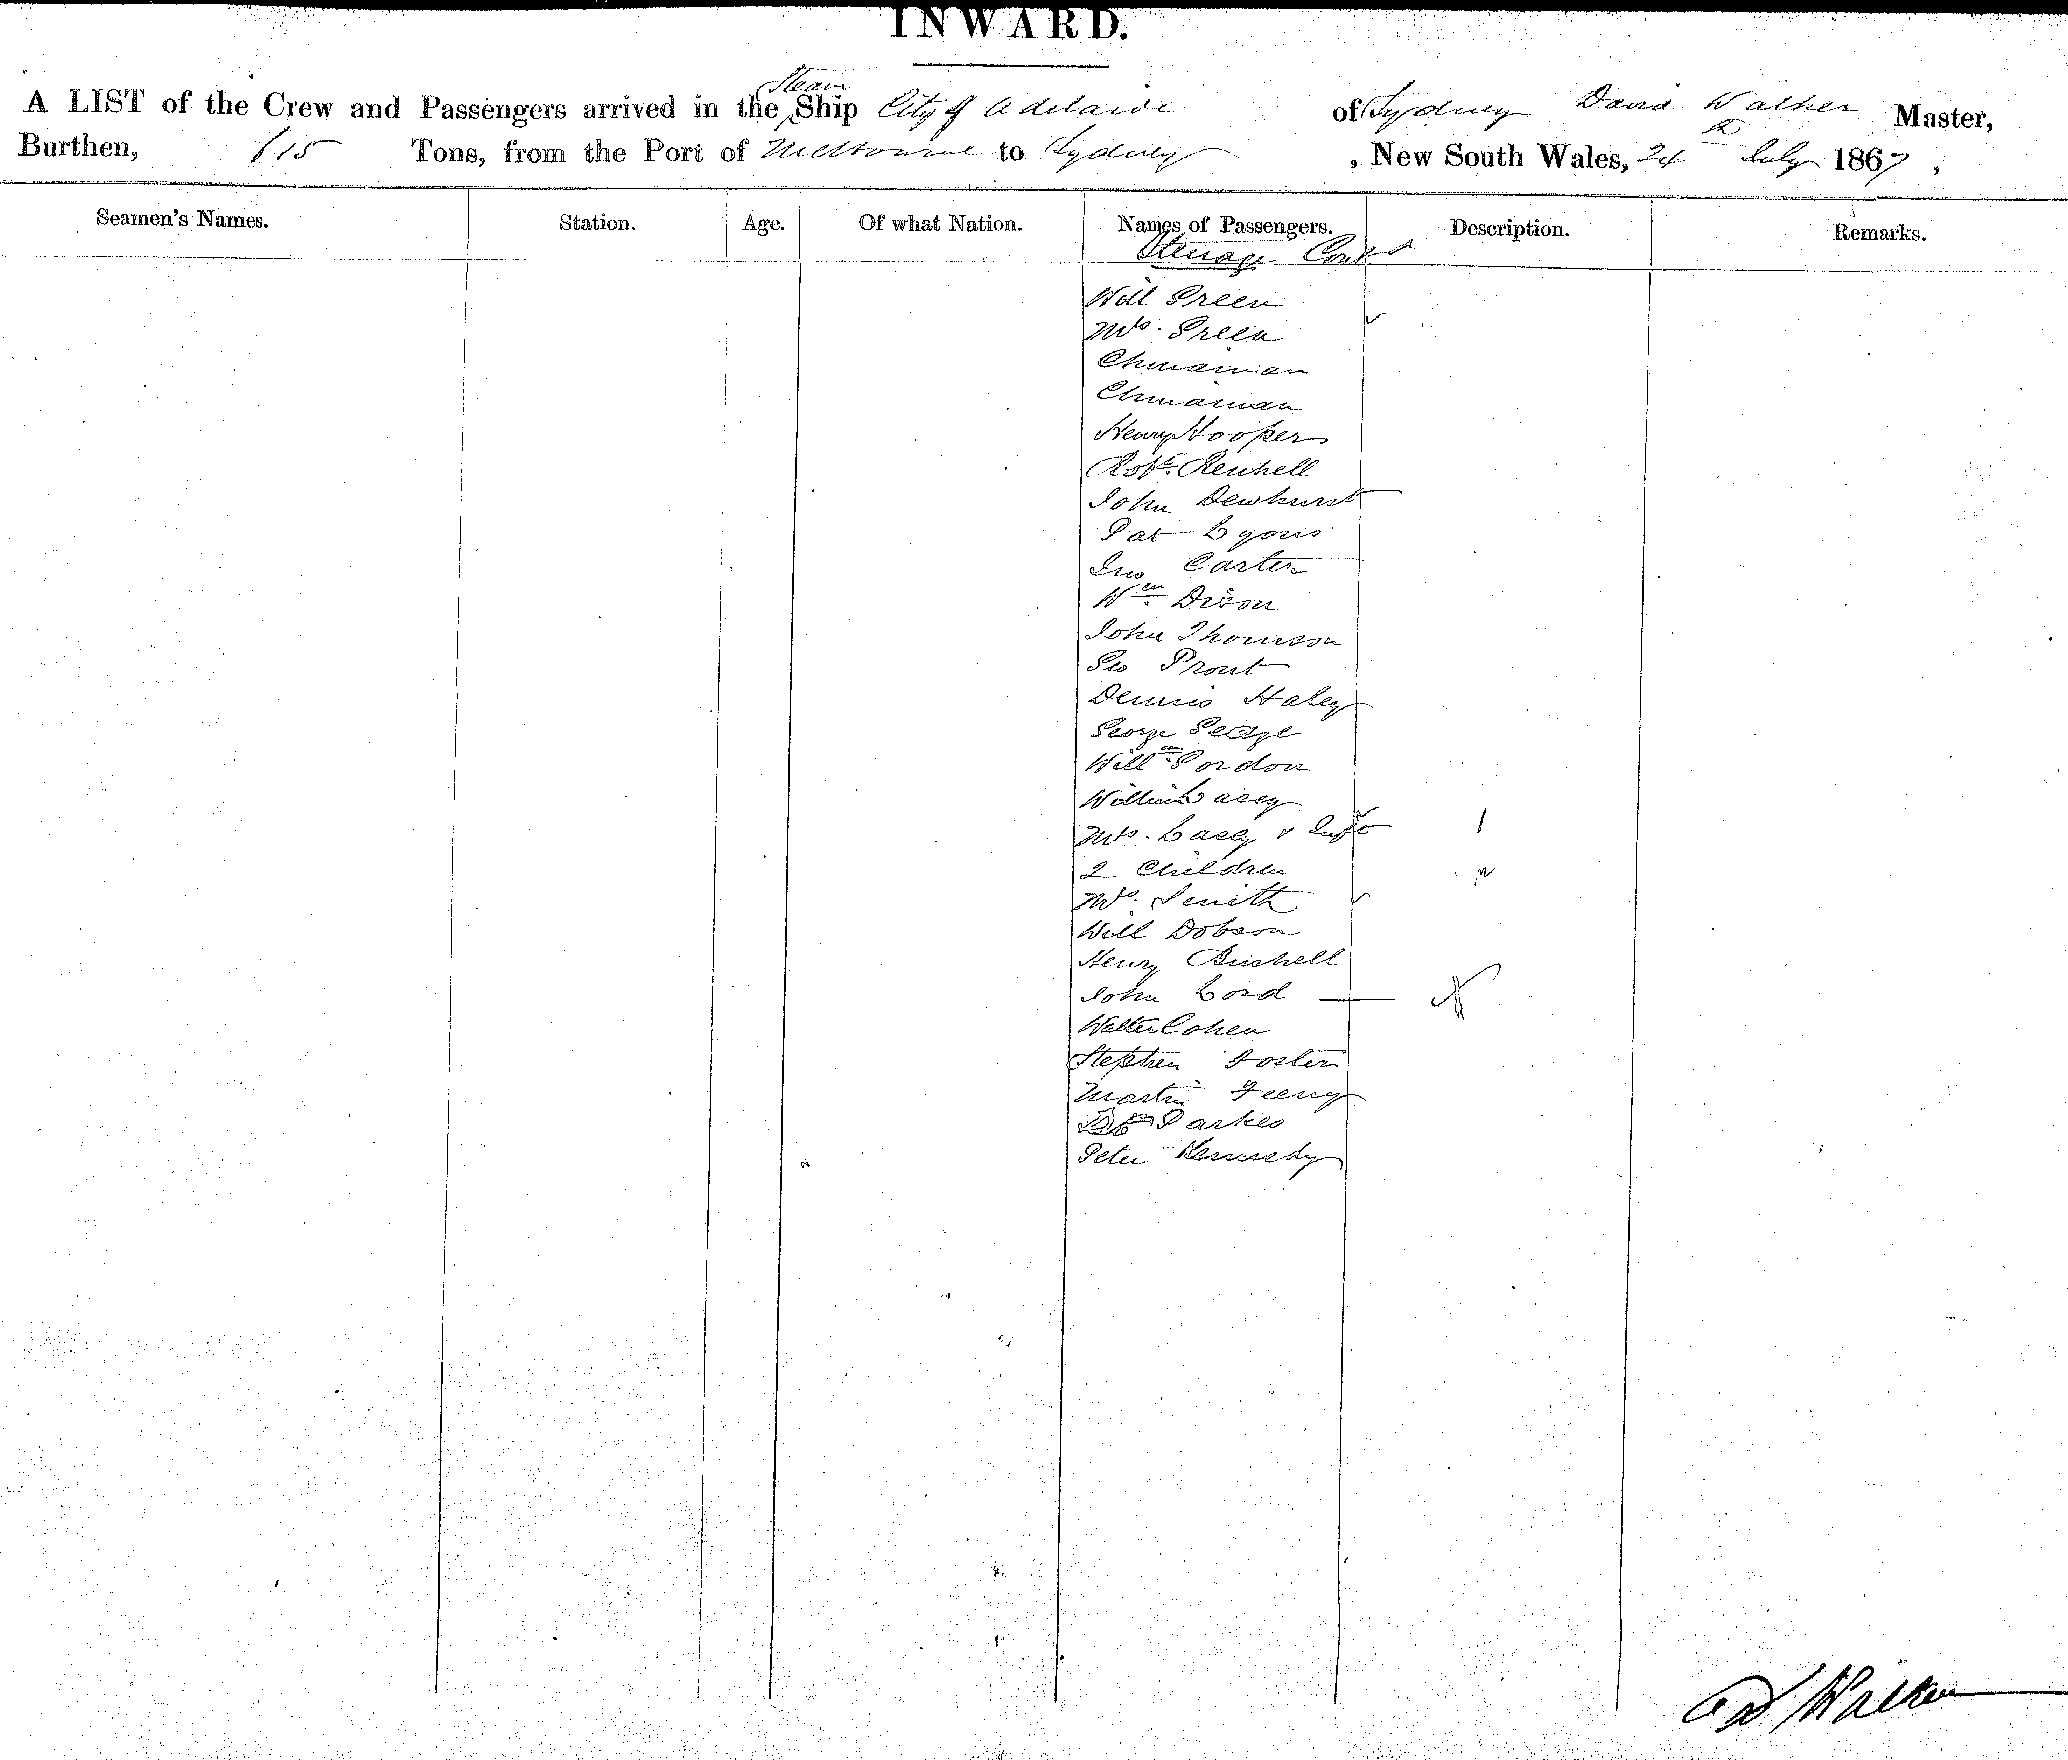 INWARD.
Steam
A LIST of the Crew and Passengers arrived in the Ship City of Adelaide of Sydney David Walker Master,
Burthen, 615 Tons, from the Port of Melbourne to Sydney , New South Wales, 24th July 1867,
Seamen's Names. Station. Age. Of what Nation. Names of Passengers. Description. Remarks.
Steerage Contd
Will Green
Mrs. Green
Chinaman
Chinaman
Henry Hooper
Robt. Renhell
John Dewhurst
Pat Lyons
Jno Carter
Wm. Dixon
John Thomson
Geo Prout
Dennis Haley
George Gedge
Willm. Gordon
William Casey
Mrs. Casey & Inft 1
2 Children 2
Mrs. Smith
Will Dobson
Henry Bushell
John Cord
Walter Cohen
Stephen Foster
Martin Feeny
Parkes
Peter Kennedy
D Walker